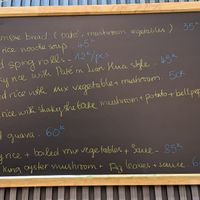 bread ( pate, mushroom vegetables ) 35k
rice noodle soup. 45k
spring rolls - 12k/pcs
rice with Pate n Lion Hua style. 48k
rice with mix vegetables + mushroom. 50k
rice with shaky shiitake mushroom + potato + bell pepp
guava. 60k
rice + boiled mix vegetables + Saure - 85k
king oyster mushroom + Fig leaves + saure. 6